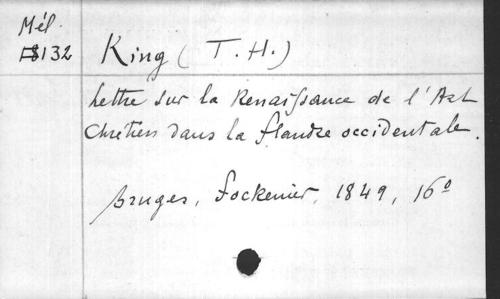 Mél.
8132
King (T. H.)
Lettre sur la Renaissance de l'Art
Chrétien dans la flandre occidentale.
Bruges, Fockenier, 1849, 16º